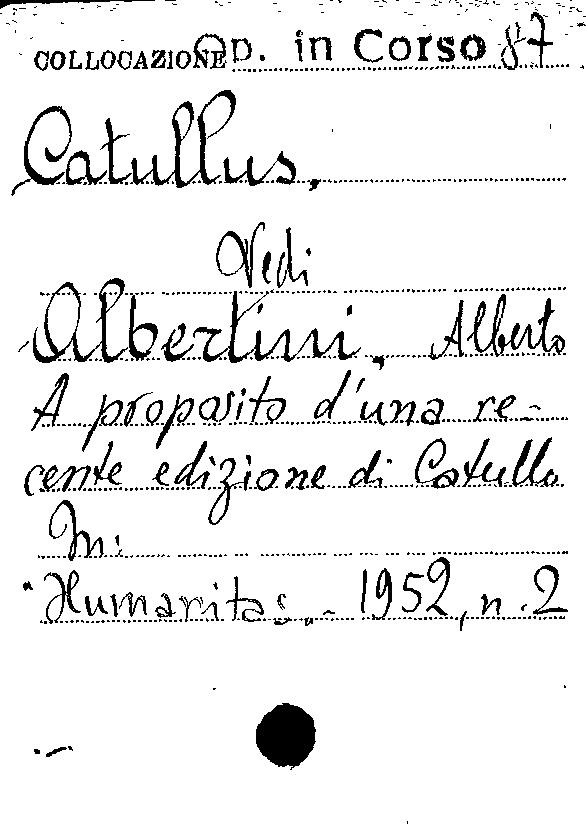 COLLOCAZIONE Op. in Corso 87
Catullus.
Vedi
Albertini, Alberto
A proposito d'una re-
cente edizione di Catullo
In:
"Humanitas.- 1952, n. 2